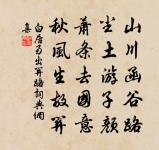 山川函谷路
尘土游子颜
萧条去國意
秋風生故关
白居易出关路詞典網
集